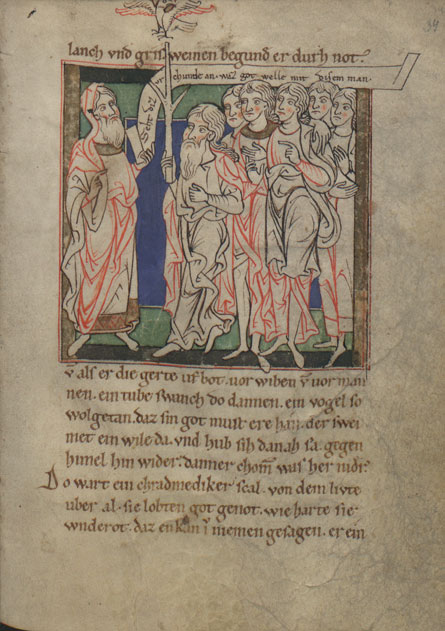 lanch vnd gris weinen begund er durh not.
Seht diz
chunde an. waz got welle mit disem man.
v̄ als er die gerte uf bot. vor wiben v̄ vor man
nen. ein tube swanch do dannen. ein vogel so
wolgetan. daz sin got must ere han. der swei
met ein wile da. vnd hub sih danah sa. gegen
himel hin wider. danner chom was her nider.
Do wart ein chradmediker scal. von dem livte
uber al. sie lobten got genot. wie harte sie
wnderot. daz en kan niemen gesagen. er ein